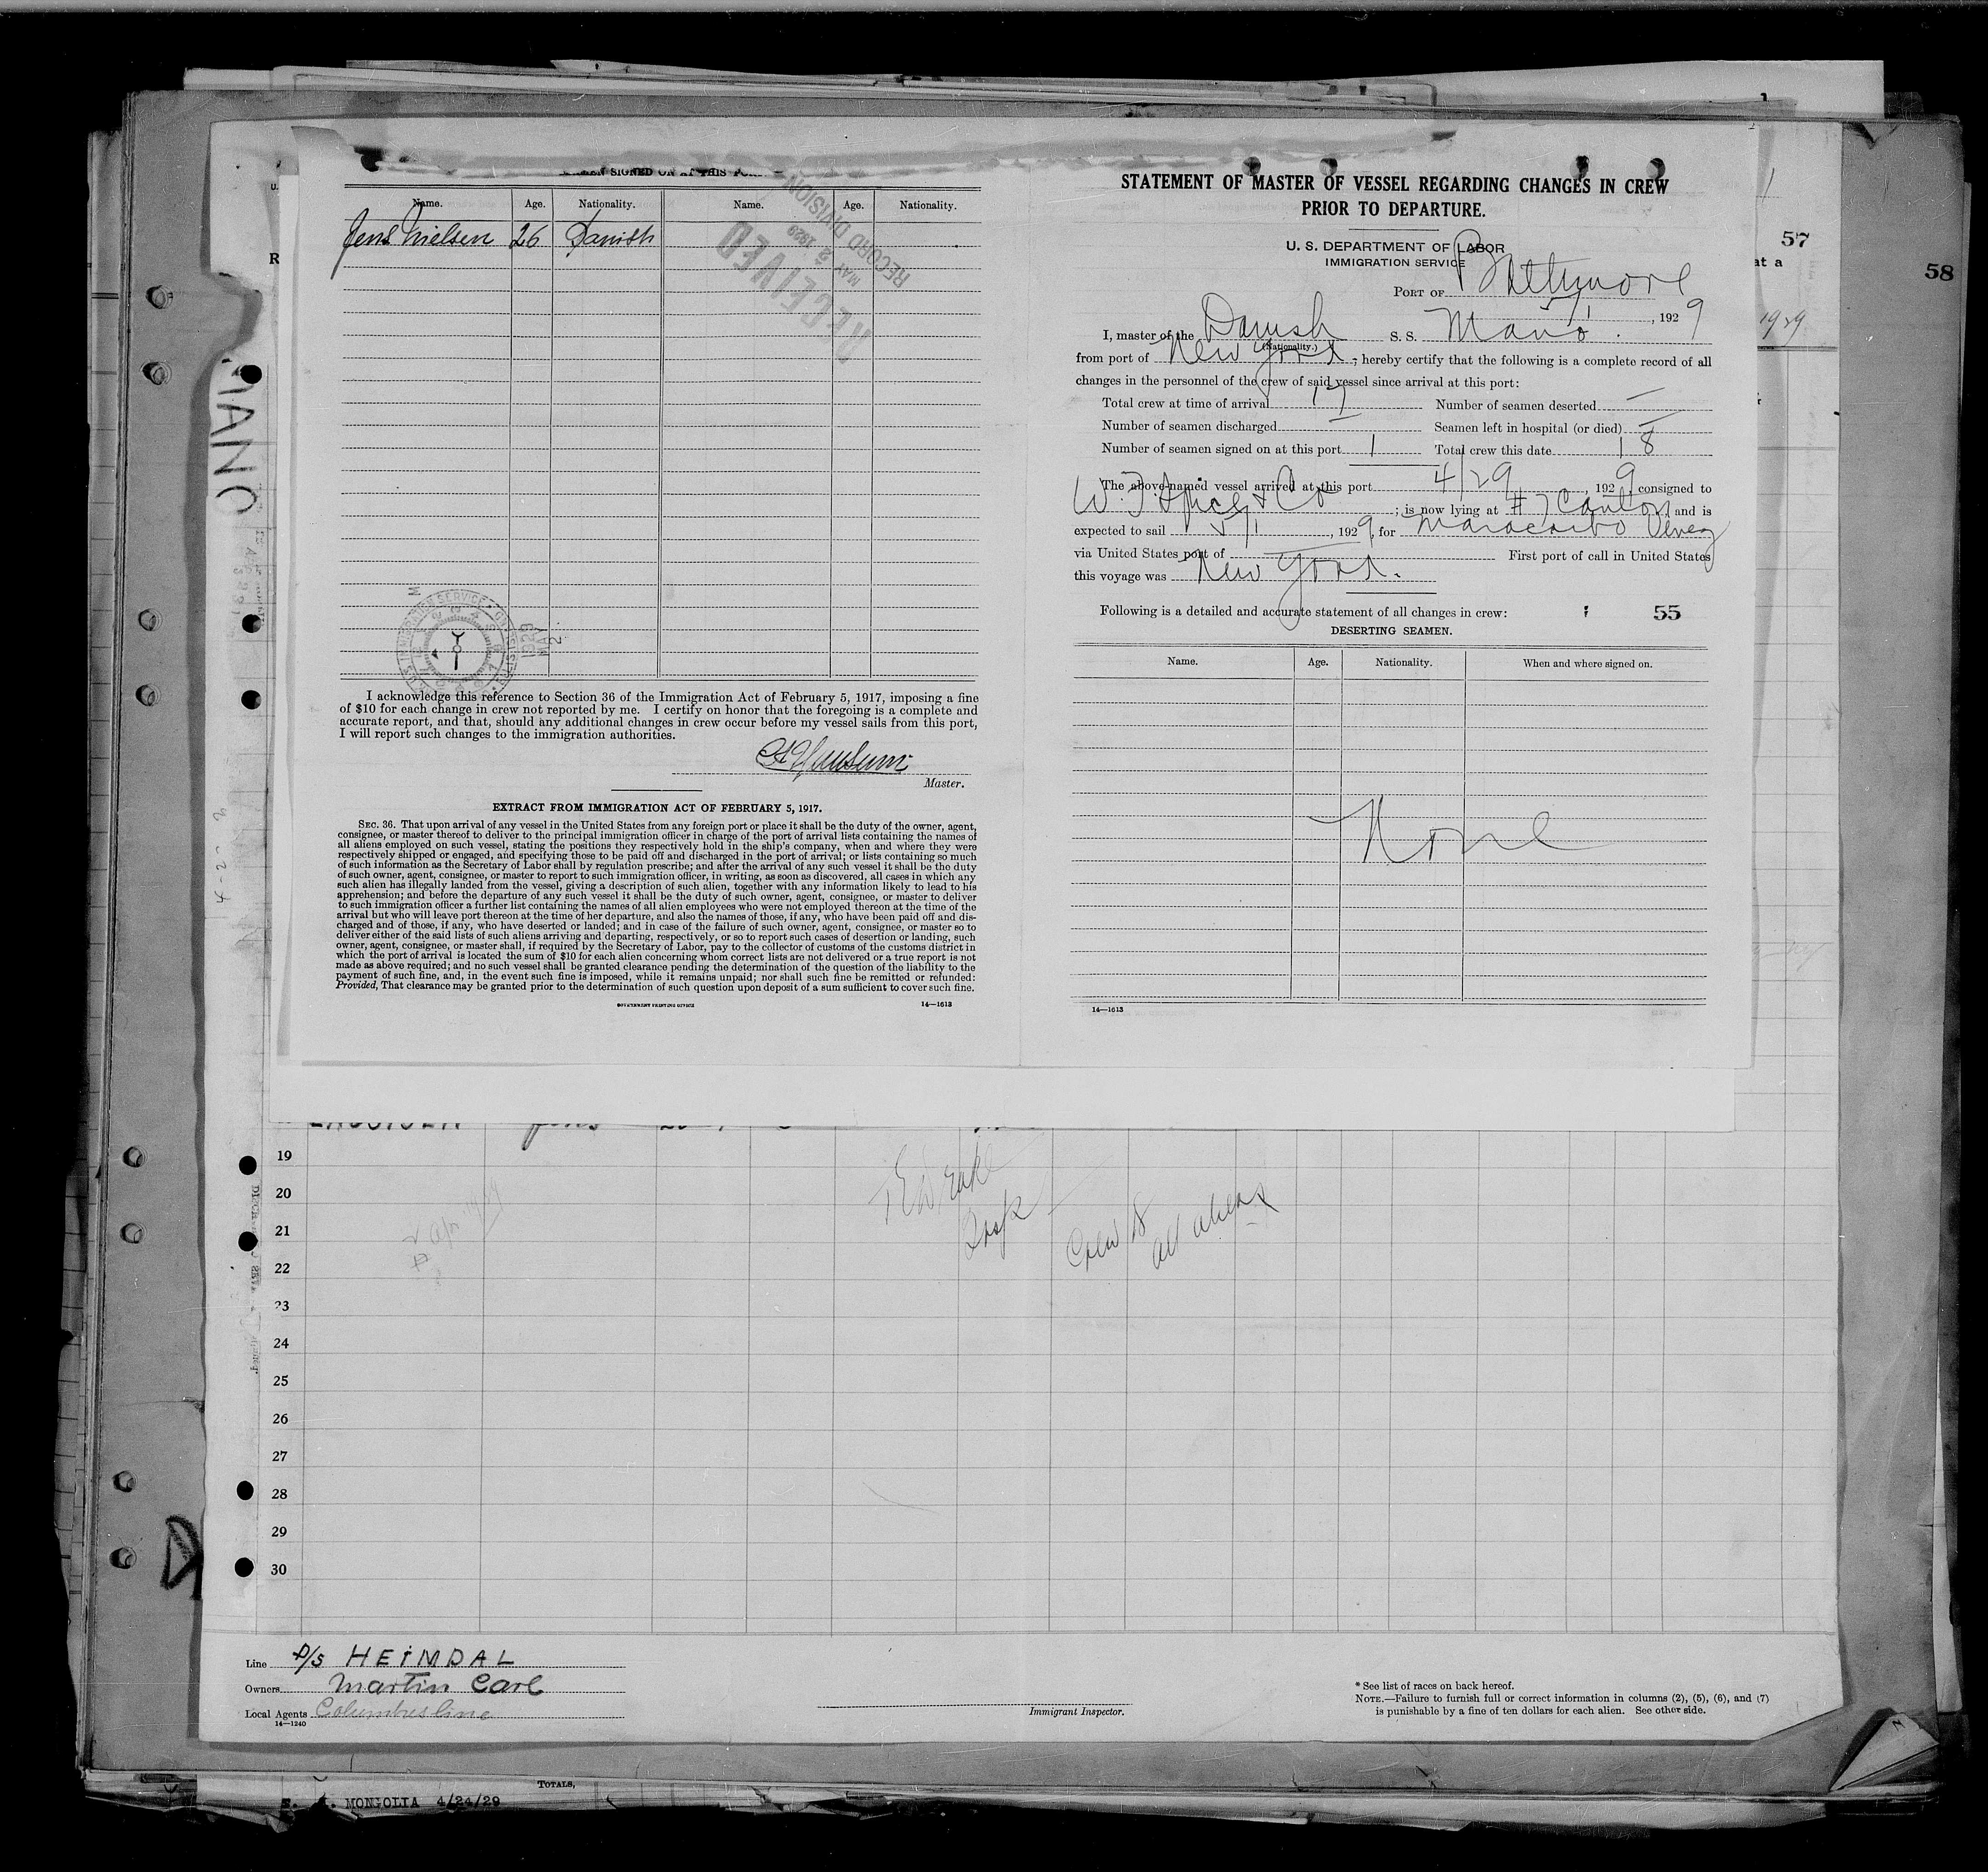 MEN SIGNED ON AT THIS PORT
Name. Age. Nationality. Name. Age. Nationality.
Jens Nielsen 26 Danish
RECEIVED
MAY 2 1929
RECORD DIVISION
I acknowledge this reference to Section 36 of the Immigration Act of February 5, 1917, imposing a fine
of $10 for each change in crew not reported by me. I certify on honor that the foregoing is a complete and
accurate report, and that, should any additional changes in crew occur before my vessel sails from this port,
I will report such changes to the immigration authorities.
Master.
EXTRACT FROM IMMIGRATION ACT OF FEBRUARY 5, 1917.
SEC. 36. That upon arrival of any vessel in the United States from any foreign port or place it shall be the duty of the owner, agent,
consignee, or master thereof to deliver to the principal immigration officer in charge of the port of arrival lists containing the names of
all aliens employed on such vessel, stating the positions they respectively hold in the ship's company, when and where they were
respectively shipped or engaged, and specifying those to be paid off and discharged in the port of arrival; or lists containing so much
of such information as the Secretary of Labor shall by regulation prescribe; and after the arrival of any such vessel it shall be the duty
of such owner, agent, consignee, or master to report to such immigration officer, in writing, as soon as discovered, all cases in which any
such alien has illegally landed from the vessel, giving a description of such alien, together with any information likely to lead to his
apprehension; and before the departure of any such vessel it shall be the duty of such owner, agent, consignee, or master to deliver
to such immigration officer a further list containing the names of all alien employees who were not employed thereon at the time of the
arrival but who will leave port thereon at the time of her departure, and also the names of those, if any, who have been paid off and dis-
charged and of those, if any, who have deserted or landed; and in case of the failure of such owner, agent, consignee, or master so to
deliver either of the said lists of such aliens arriving and departing, respectively, or so to report such cases of desertion or landing, such
owner, agent, consignee, or master shall, if required by the Secretary of Labor, pay to the collector of customs of the customs district in
which the port of arrival is located the sum of $10 for each alien concerning whom correct lists are not delivered or a true report is not
made as above required; and no such vessel shall be granted clearance pending the determination of the question of the liability to the
payment of such fine, and, in the event such fine is imposed, while it remains unpaid; nor shall such fine be remitted or refunded:
Provided, That clearance may be granted prior to the determination of such question upon deposit of a sum sufficient to cover such fine.
GOVERNMENT PRINTING OFFICE 14—1613
STATEMENT OF MASTER OF VESSEL REGARDING CHANGES IN CREW
PRIOR TO DEPARTURE.
U. S. DEPARTMENT OF LABOR
IMMIGRATION SERVICE
PORT OF Baltimore
5/1, 1929
I, master of the Danish S. S. Manö
(Nationality.)
from port of New York, hereby certify that the following is a complete record of all
changes in the personnel of the crew of said vessel since arrival at this port:
Total crew at time of arrival 17 Number of seamen deserted —
Number of seamen discharged — Seamen left in hospital (or died) —
Number of seamen signed on at this port 1 Total crew this date 18
The above-named vessel arrived at this port 4/29, 1929 consigned to
W. J. Spicer & Co; is now lying at # 7 Canton and is
expected to sail 5/1, 1929, for Maracaibo Venez
via United States port of — First port of call in United States
this voyage was New York.
Following is a detailed and accurate statement of all changes in crew: 55
DESERTING SEAMEN.
Name. Age. Nationality. When and where signed on.
None
14—1613
57
at a
1929
58
MANO
19
20
21
22
23
24
25
26
27
28
29
30
Crew 18
all aliens
Line D/S HEIMDAL
Owners Martin Carl
Local Agents Columbus line
14—1240
Immigrant Inspector.
* See list of races on back hereof.
NOTE.—Failure to furnish full or correct information in columns (2), (5), (6), and (7)
is punishable by a fine of ten dollars for each alien. See other side.
TOTALS,
MONGOLIA 4/24/29